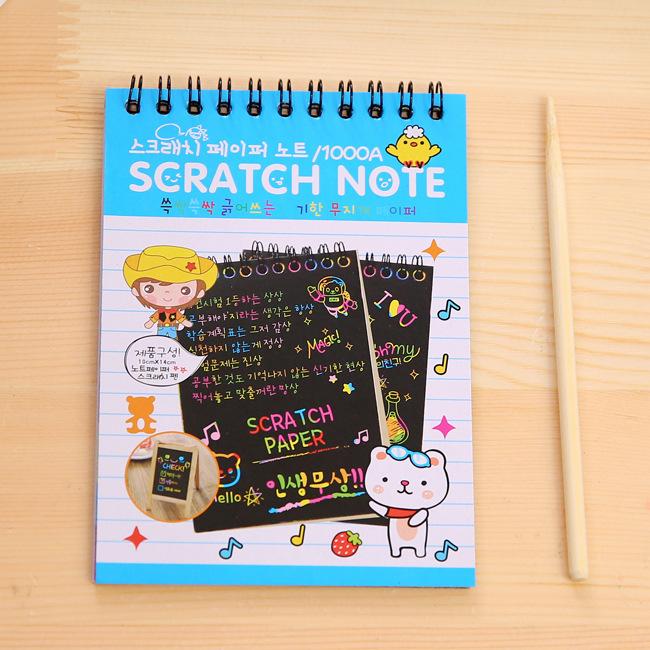 스크래치 페이퍼 노트 /1000A
SCRATCH NOTE
쓱싹쓱싹 긁어쓰는 기한 무지 페이퍼
시험 1등하는 상상
부해야지라는 생각은 항상
학습계획표는 그저 감상
실천하지 않는게 정상
문제는 진상
공부한 것도 기억나지 않는 신기한 현상
찍어놓고 맞출꺼란 망상
Magic!
I U
oh my
의친구
제품구성!
10cmX14cm
노트페이퍼
스크래치 펜
SCRATCH
PAPER
CHECK!
Hello
인생무상!!